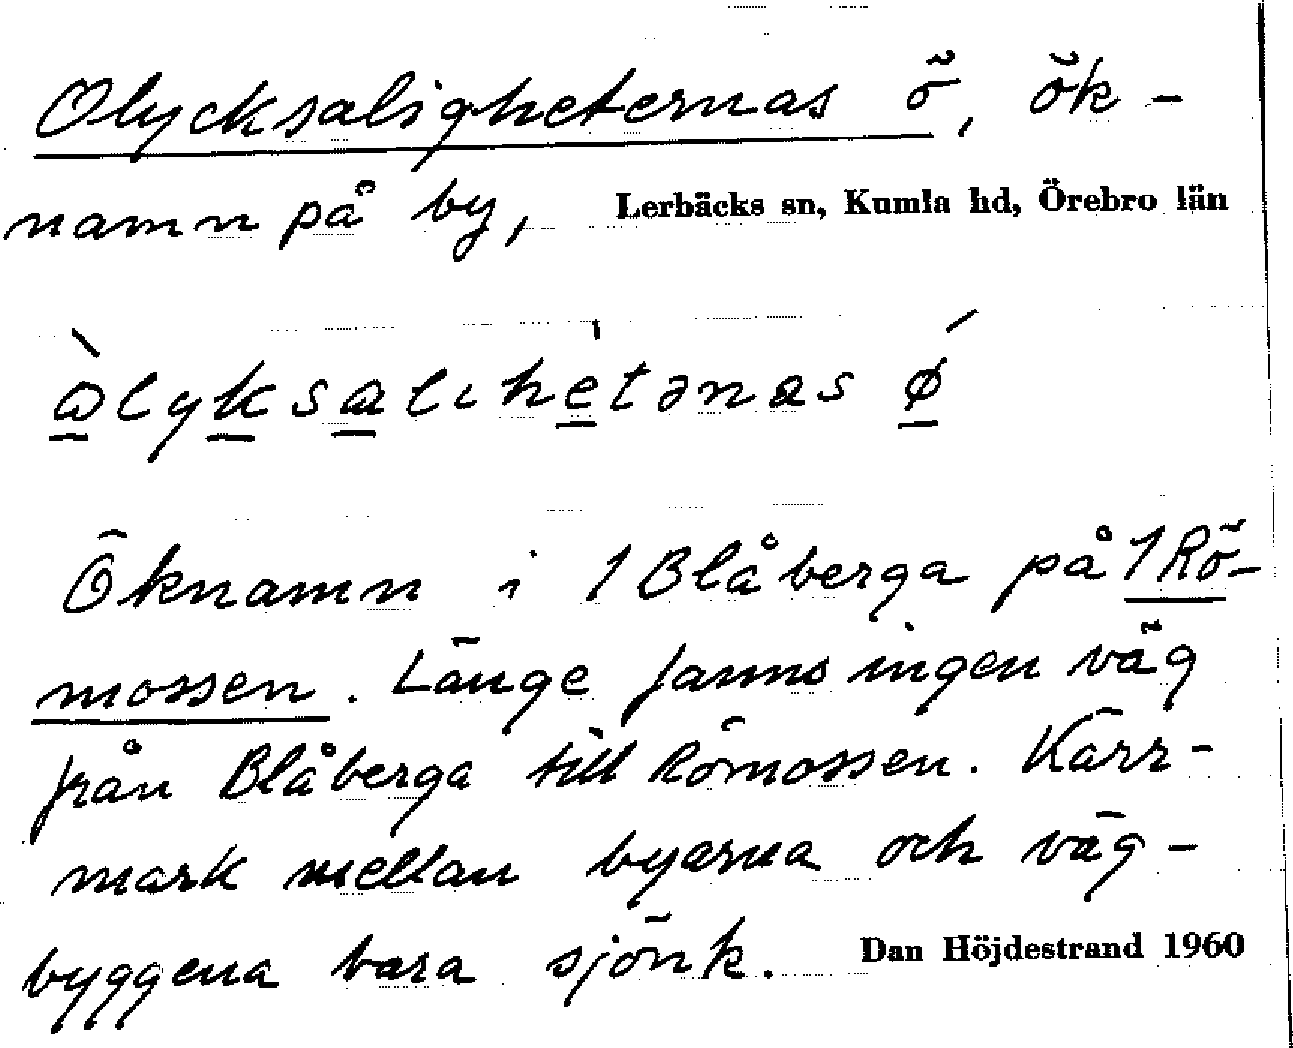 Olycksaligheternas ö, ök-
namn på by, Lerbäcks sn, Kumla hd, Örebro län
Öknamn i 1 Blåberga på 1 Rö-
mossen. Länge fanns ingen väg
från Blåberga till Römossen. Kärr-
mark mellan byarna och väg-
byggena bara sjönk. Dan Höjdestrand 1960